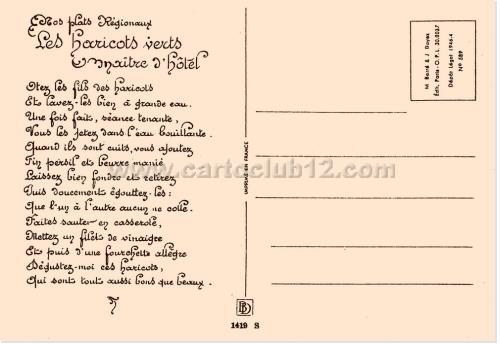 Nos plats Régionaux
Les haricots verts
maître d'hôtel
Otez les fils des haricots
Et lavez-les bien à grande eau.
Une fois fait, séance tenante,
Vous les jetez dans l'eau bouillante.
Quand ils sont cuits, vous ajoutez
Fin persil et beurre manié
Laissez bien fondre et retirez
Puis doucement égouttez-les:
Que l'un à l'autre aucun ne colle.
Faites sauter en casserole,
Mettez un filet de vinaigre
Et puis d'une fourchette allègre
Dégustez-moi ces haricots,
Qui sont tout aussi bons que beaux.
www.cartoclub12.com
IMPRIMÉ EN FRANCE
BD
1419 S
M. Barré & J. Dayez
Édit. Paris-O.P.L. 30.0037
Dépôt Légal 1946-4
No 589